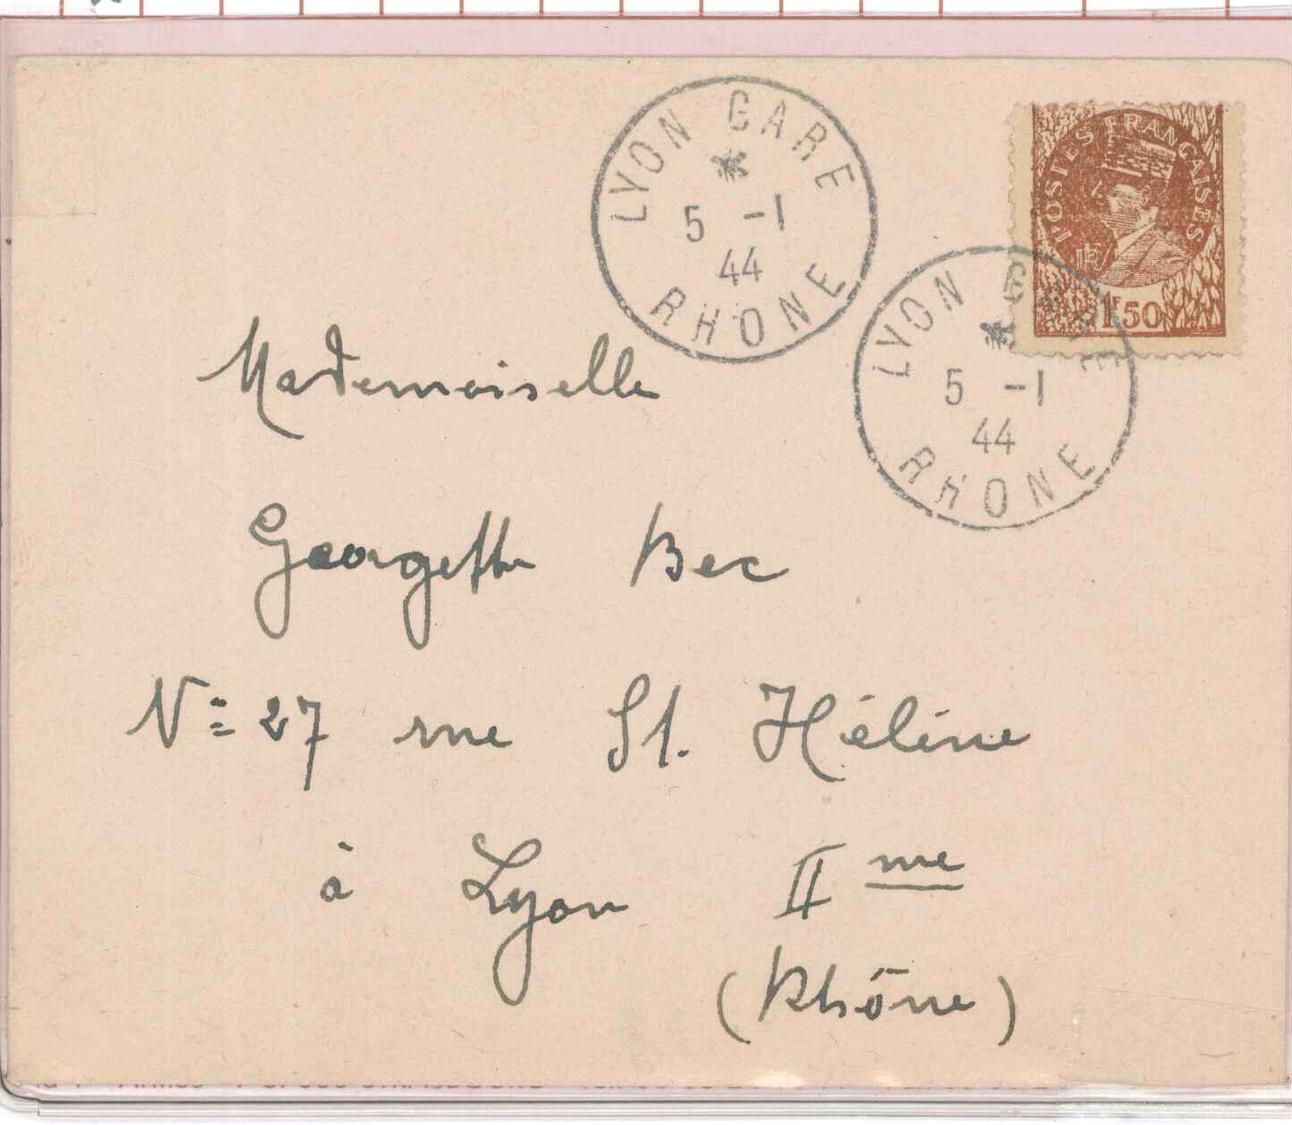 LYON GARE
5 -1
44
RHONE
POSTES FRANÇAISES
1F50
LYON GARE
5 -1
44
RHONE
Mademoiselle
Georgette Bec
N° 27 rue St. Hélène
à Lyon II me
(Rhône)